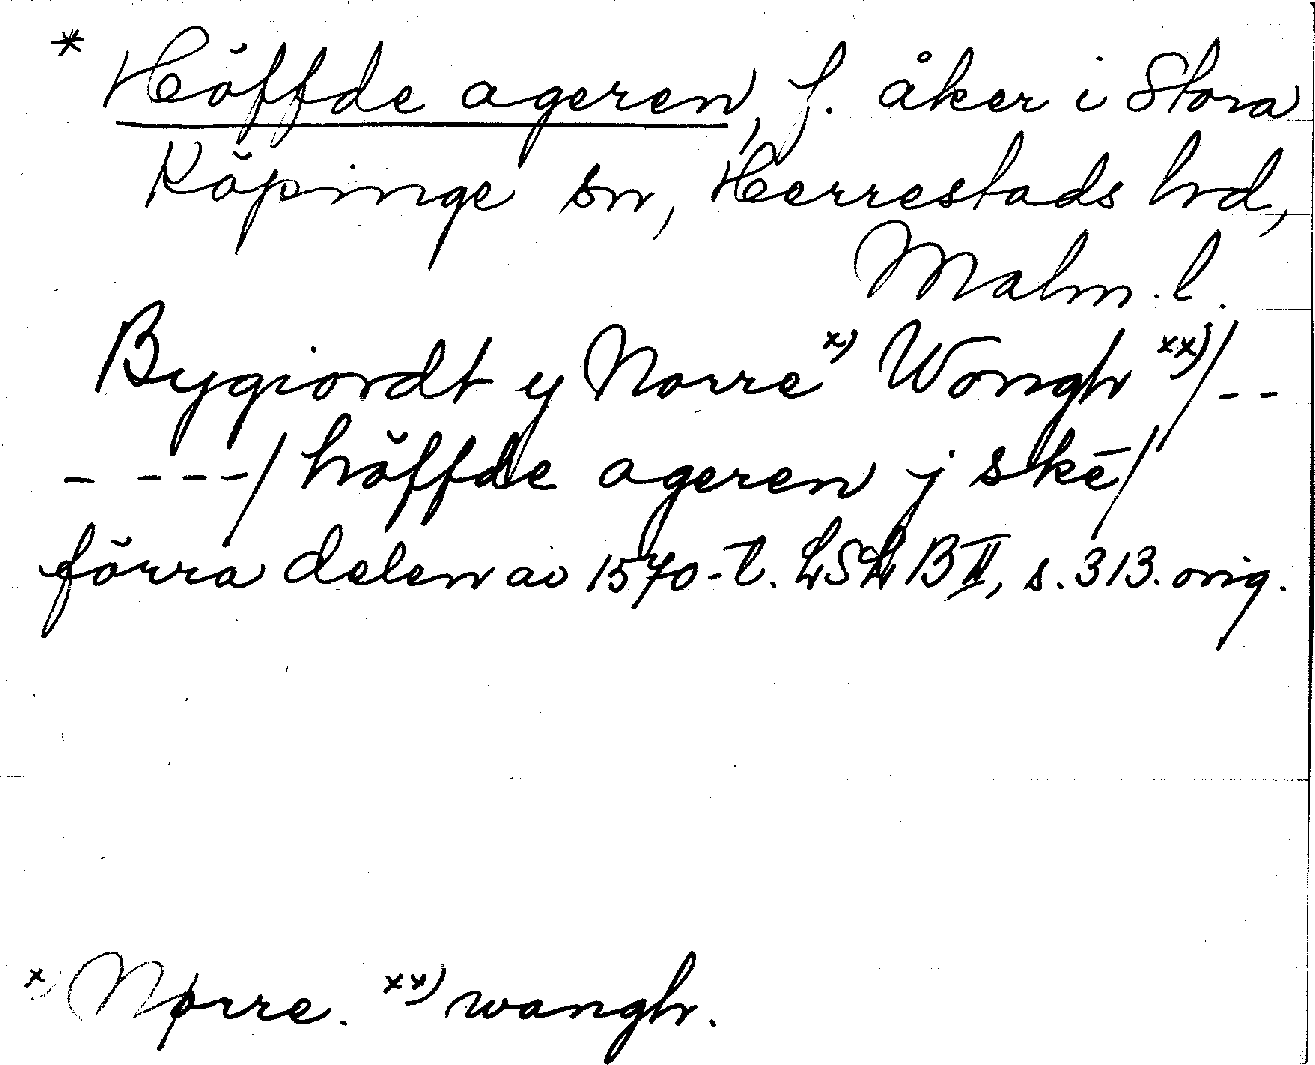 * Höffde ageren, f. åker i Stora
Köpinge sn, Herrestads hd,
Malm. l.
Bygiordt y Norre x) Wongh xx)/--
----/ höffde ageren j skē/
förra delen av 1570-t. LSL BII, s. 313. orig.
x) Nørre. xx) wangh.